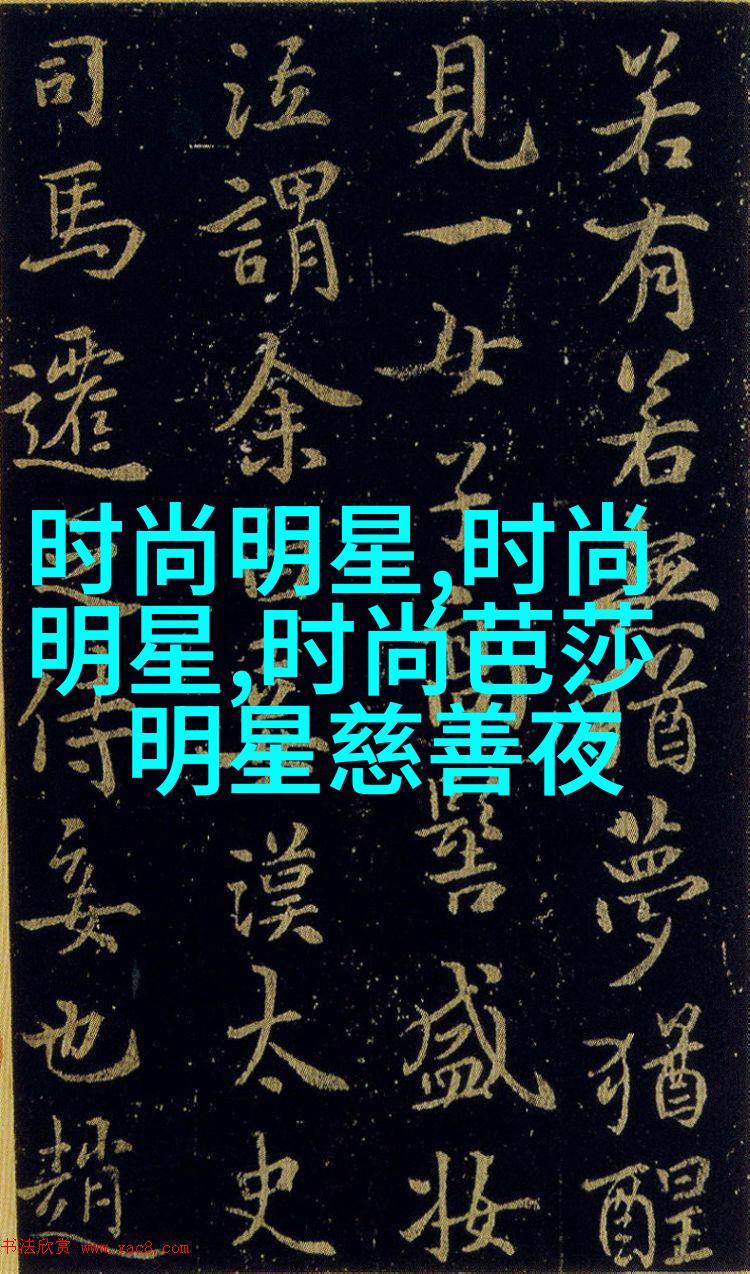 若有若無猶夢猶醒
見一女子髻盛妝
泣謂余漢太史
司馬遷之侍妾也趙
时尚明星,时尚
明星,时尚芭莎
明星慈善夜
书法欣赏 www.yac8.com